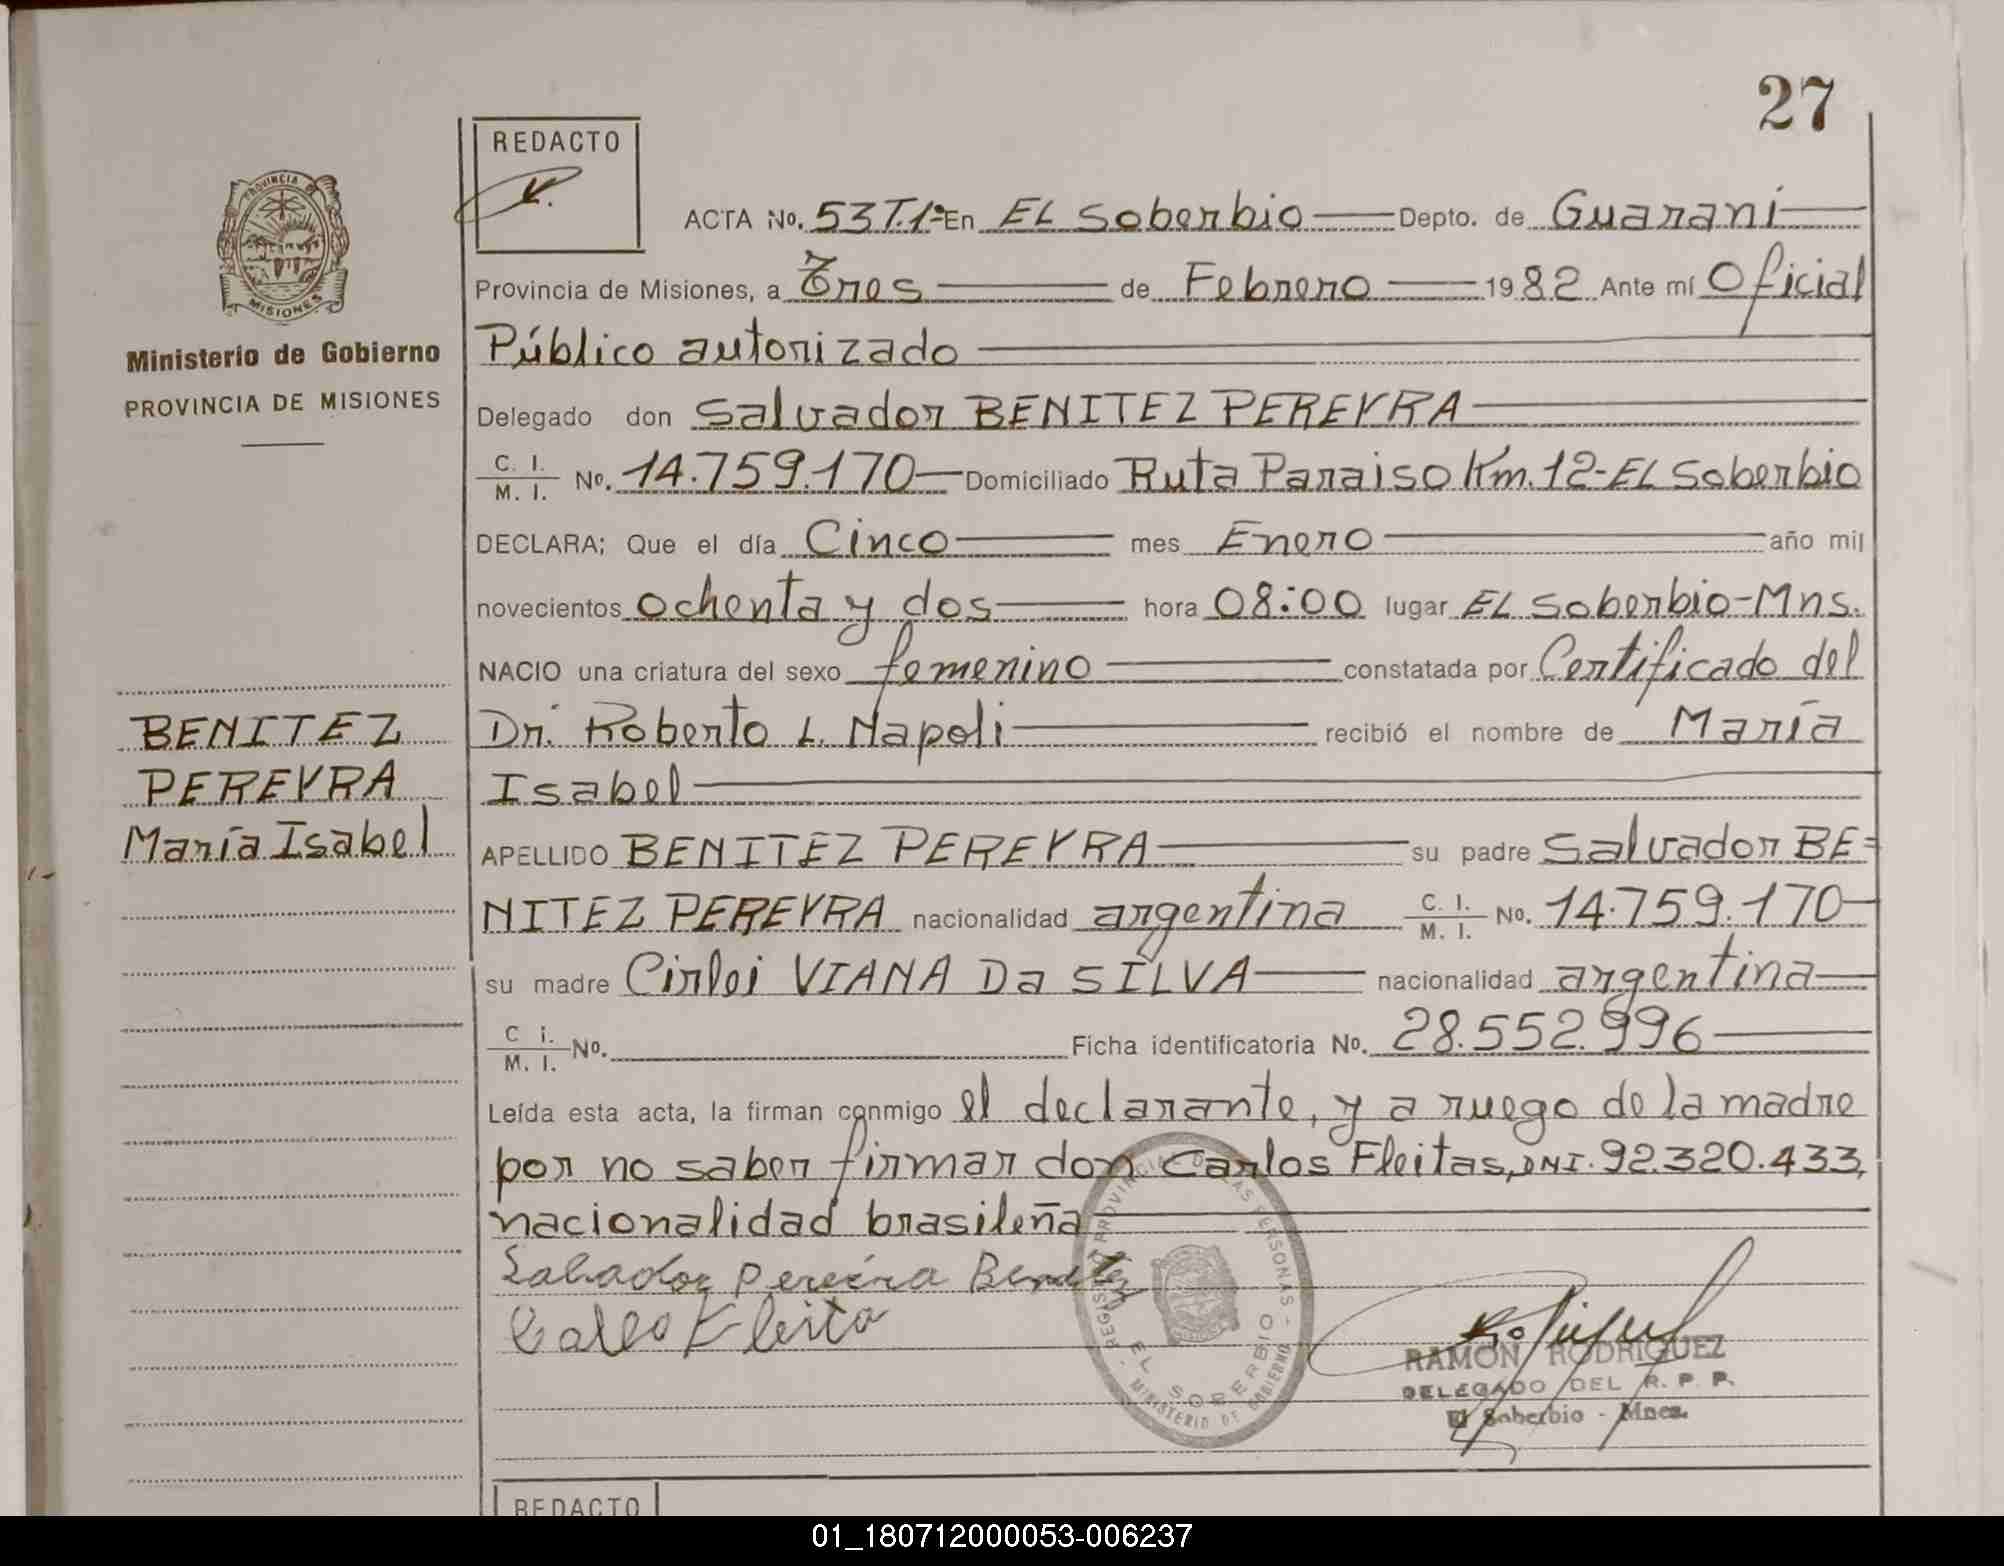 27
REDACTO
ACTA No. 53T.1ª En EL Soberbio Depto. de Guaraní
Provincia de Misiones, a Tres de Febrero 1982 Ante mí Oficial
Público autorizado
Delegado don Salvador BENITEZ PEREYRA
C. I. / M. I. No. 14.759.170 Domiciliado Ruta Paraiso Km. 12-EL Soberbio
DECLARA; Que el día Cinco mes Enero año mil
novecientos ochenta y dos hora 08:00 lugar EL Soberbio-Mns.
NACIO una criatura del sexo femenino constatada por Certificado del
Dr. Roberto L. Napoli recibió el nombre de María
Isabel
APELLIDO BENITEZ PEREYRA su padre Salvador BE=
NITEZ PEREYRA nacionalidad argentina C. I. / M. I. No. 14.759.170
su madre Cirlei VIANA Da SILVA nacionalidad argentina
C i. / M. I. No. Ficha identificatoria No. 28.552.996
Leída esta acta, la firman conmigo el declarante, y a ruego de la madre
por no saber firmar don Carlos Fleitas, DNI. 92.320.433,
nacionalidad brasileña
PROVINCIA DE
MISIONES
Ministerio de Gobierno
PROVINCIA DE MISIONES
BENITEZ
PEREYRA
María Isabel
Salvador Pereira Benitez
REGISTRO PROVINCIAL DE LAS PERSONAS
EL SOBERBIO
MINISTERIO DE GOBIERNO
RAMON RODRIGUEZ
DELEGADO DEL R. P. P.
El Soberbio - Mnes.
REDACTO
01_180712000053-006237